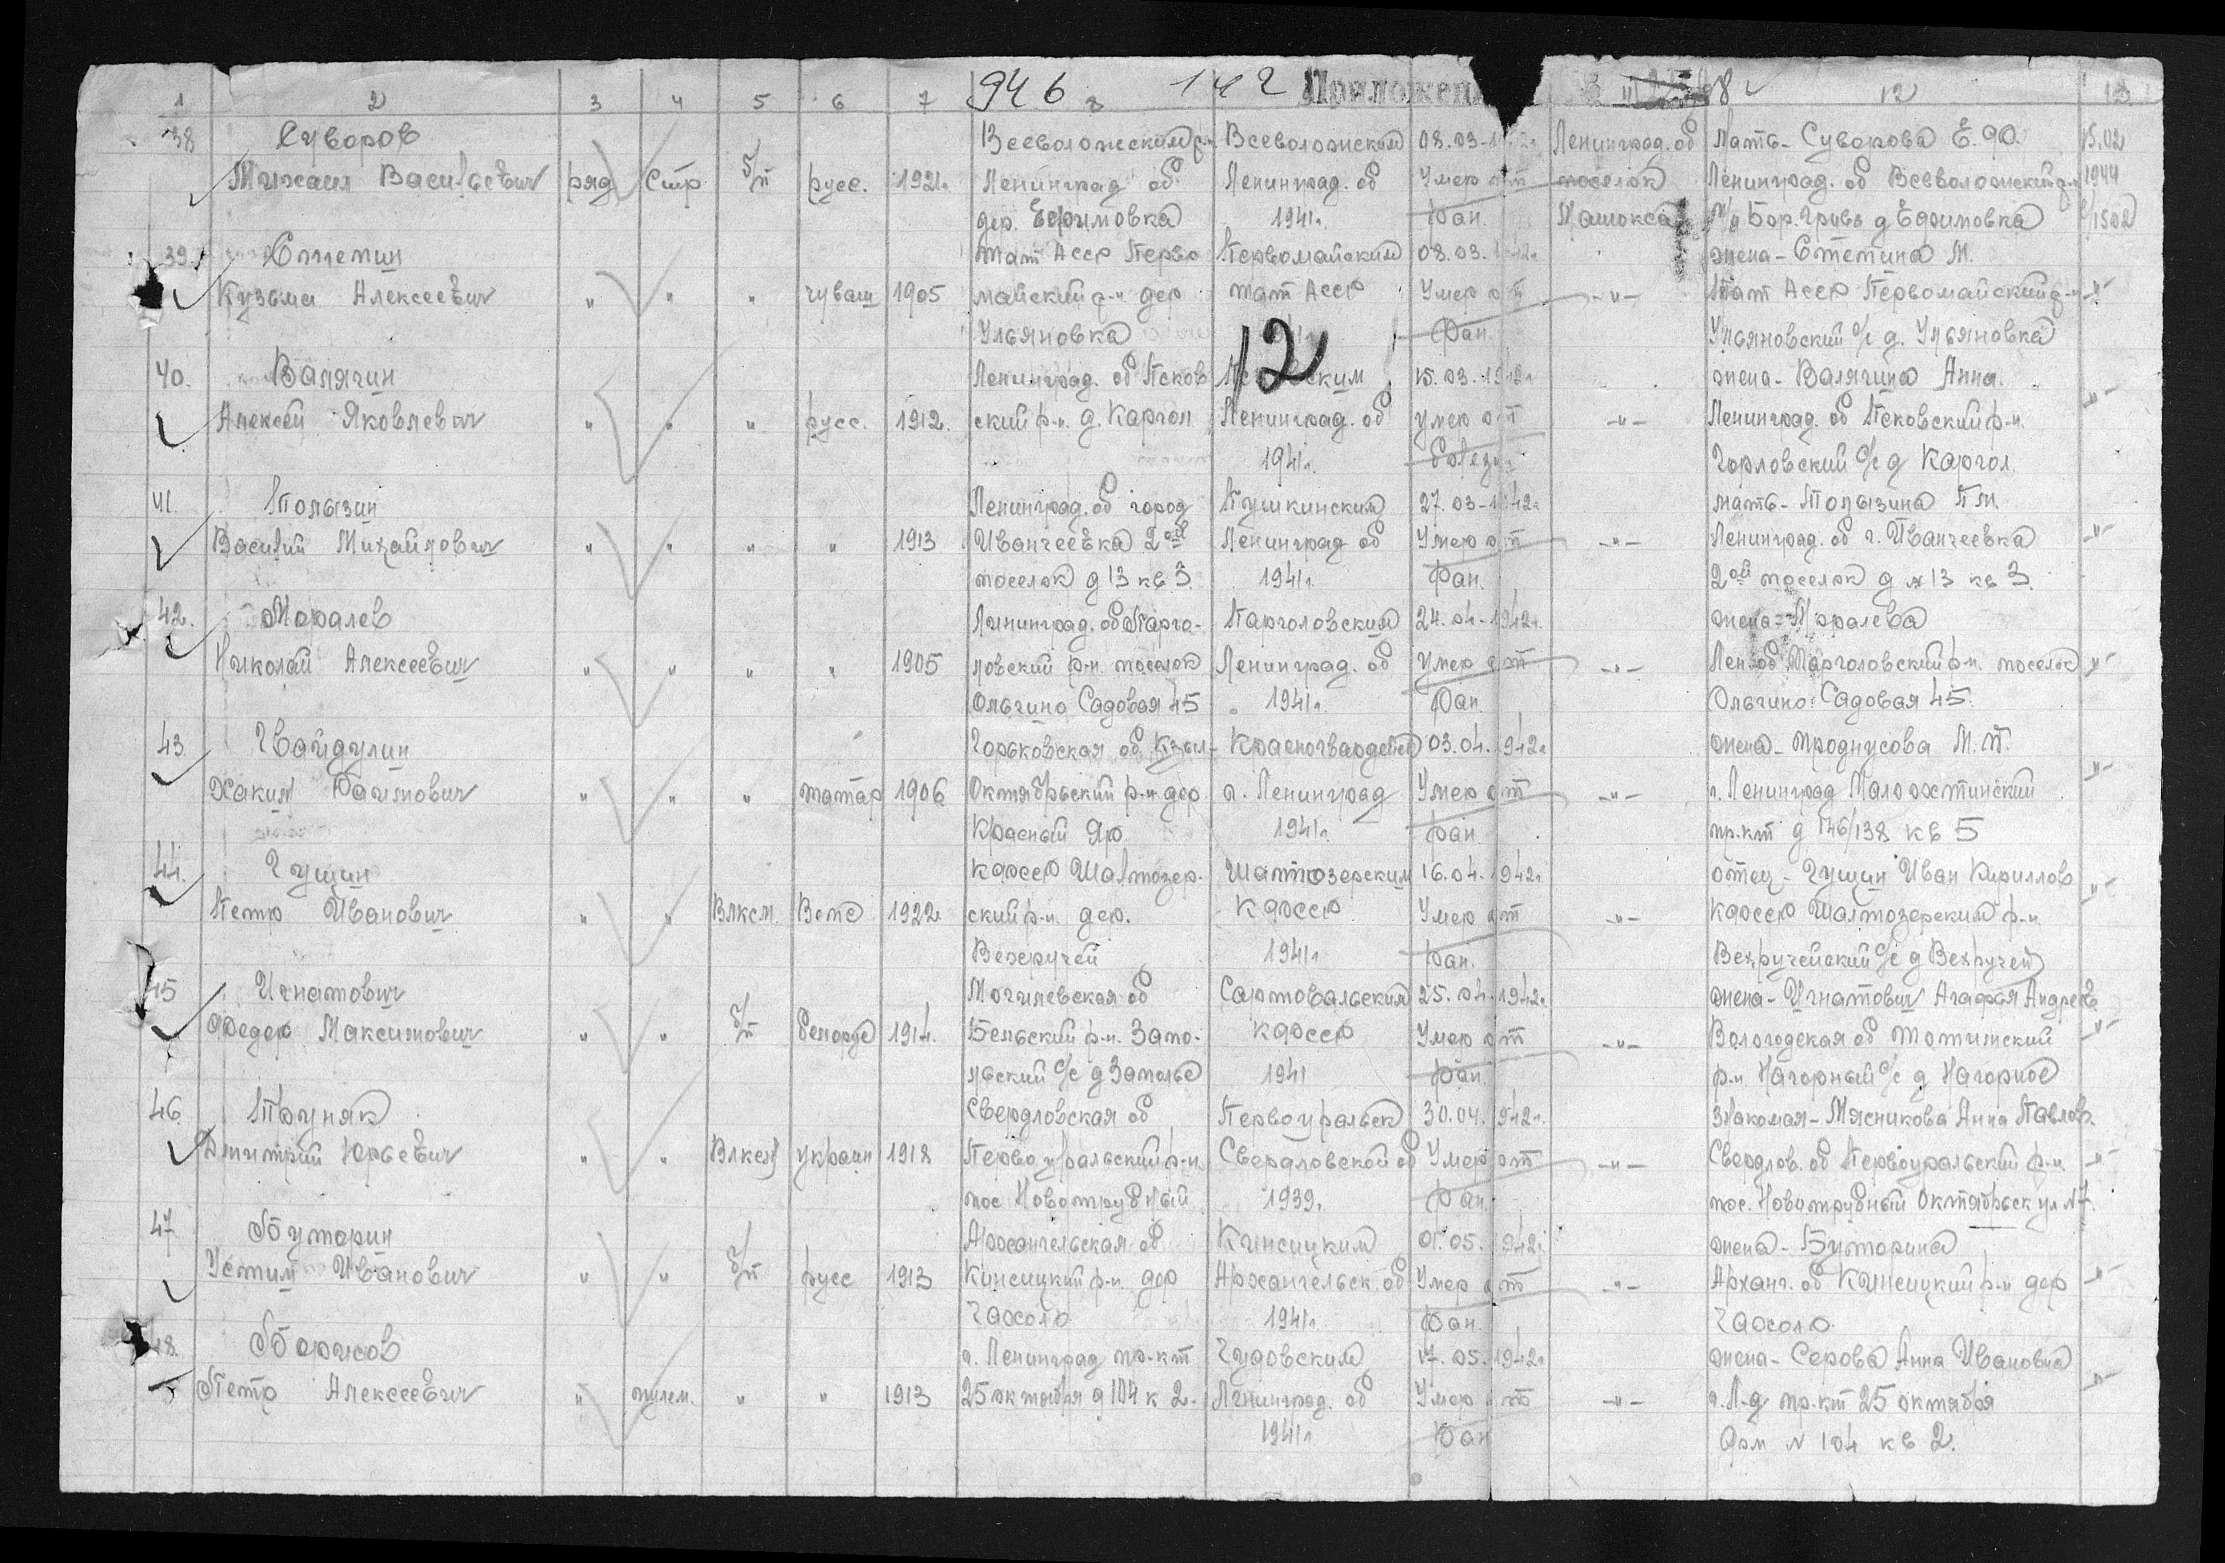 946 142 Приложен 8
1 2 3 4 5 6 7 8 12 13
38 Суворов Всеволожским р-н Всеволожским 08.03-1942г Ленинград. об мать - Суворова Е. 15.02
Михаил Васильевич ряд Стр б/п русс. 1921г. Ленинград об Ленинград. об Умер от поселок Ленинград. об Всеволожский р-н 1944
дер. Ефимовка 1941г. ран. п/о Бор. Гривы д Ефимовка 1/1502
39. Степин Тат АССР Перво Первомайским 08.03.1942г жена - Степина М.
Кузьма Алексеевич " " " чуваш 1905 майский р-н дер Тат АССР Умер от -"- Тат АССР Первомайский р-н -"-
Ульяновка ран. Ульяновский с/с д. Ульяновка
12
40. Валягин Ленинград. об Псков Псковским 15.03.1942г жена - Валягина Анна.
Алексей Яковлевич " " " русс. 1912. ский р-н. д. Каргол Ленинград. об умер от -"- Ленинград. об Псковский р-н. -"-
1941г. болезн Горловский с/с д Каргол.
41. Полызин Ленинград. об город Пушкинским 27.03-1942г мать - Полызина П.М.
Василий Михайлович " " " " 1913 Иванчеевка 2ой Ленинград об Умер от -"- Ленинград. об г. Иванчеевка -"-
поселок д 13 кв 3. 1941г. ран. 2ой поселок д № 13 кв 3.
42. Моралев Лининград. об Парго- Парголовским 24.04-1942г. жена - Моралева
Николай Алексеевич " " " " 1905 ловский р-н. поселок Ленинград. об умер от -"- Лен. об Парголовский р-н. поселок -"-
Ольгино Садовая 45 1941г. ран. Ольгино Садовая 45.
43. Гвайдулин Горьковская об. Кзыл- Красногвардейск 03.04.1942г жена - М.П.
Хаким " " " татар 1906 Октябрьский р-н дер г. Ленинград Умер от -"- г. Ленинград Малоохтинский -"-
Красный Яр 1941г. ран пр.кт д 146/138 кв 5
44. Гущин КФССР Шалтозер- Шалтозерским 16.04.1942г. отец - Гущин Иван Кириллов
Петр Иванович " " ВЛКСМ. Вепс 1922 ский р-н. дер. КФССР Умер от -"- КФССР Шалтозерским р-н. -"-
Вехручей 1941г ран. Вехручейский с/с д Вехручей
45 Игнатович Могилевская об Сортовальским 25.04.1942г. жена - Игнатович Агафья Андреев
Федор Максимович " " б/п белорус 1914. Бельский р-н. Запо- КФССР Умер от -"- Вологодская об Тотимский -"-
льский с/с д Заполье 1941 ран. р-н Нагорный с/с д Нагорное
46 Труняк Свердловская об Первоуральск 30.04.1942г. знакомая - Мясникова Анна Павлов.
Дмитрий Юрьевич " " ВЛКСМ украин 1918 Первоуральский р-н. Свердловской об Умер от -"- Свердлов. об Первоуральский р-н. -"-
пос. Новотрубный 1939г. ран. пос. Новотрубный Октябрьск ул №7.
47 Буторин Архангельская об Кинецким 01.05.1942г. жена - Буторина
Устим Иванович " " б/п русс 1913 р-н. дер Архангельск. об Умер от -"- Арханг. об р-н дер -"-
1941г. ран.
48. Борисов г. Ленинград пр-кт Чудовским 17.05.1942г. жена - Серова Анна Ивановна
Петр Алексеевич " пулем. " " 1913 25 октября д 104 к 2. Ленинград. об Умер от -"- г. Л-д пр.кт 25 октября -"-
1941г ран дом № 104 кв 2.